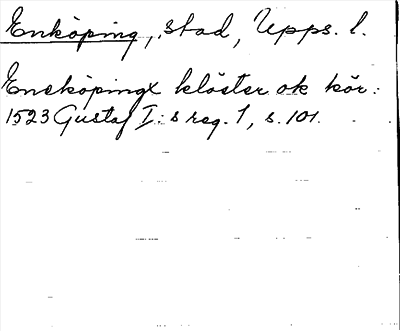 Enköping, stad, Upps. l.
Eneköpingx klöster ok kör:
1523 Gustaf I:s reg. 1, s. 101.